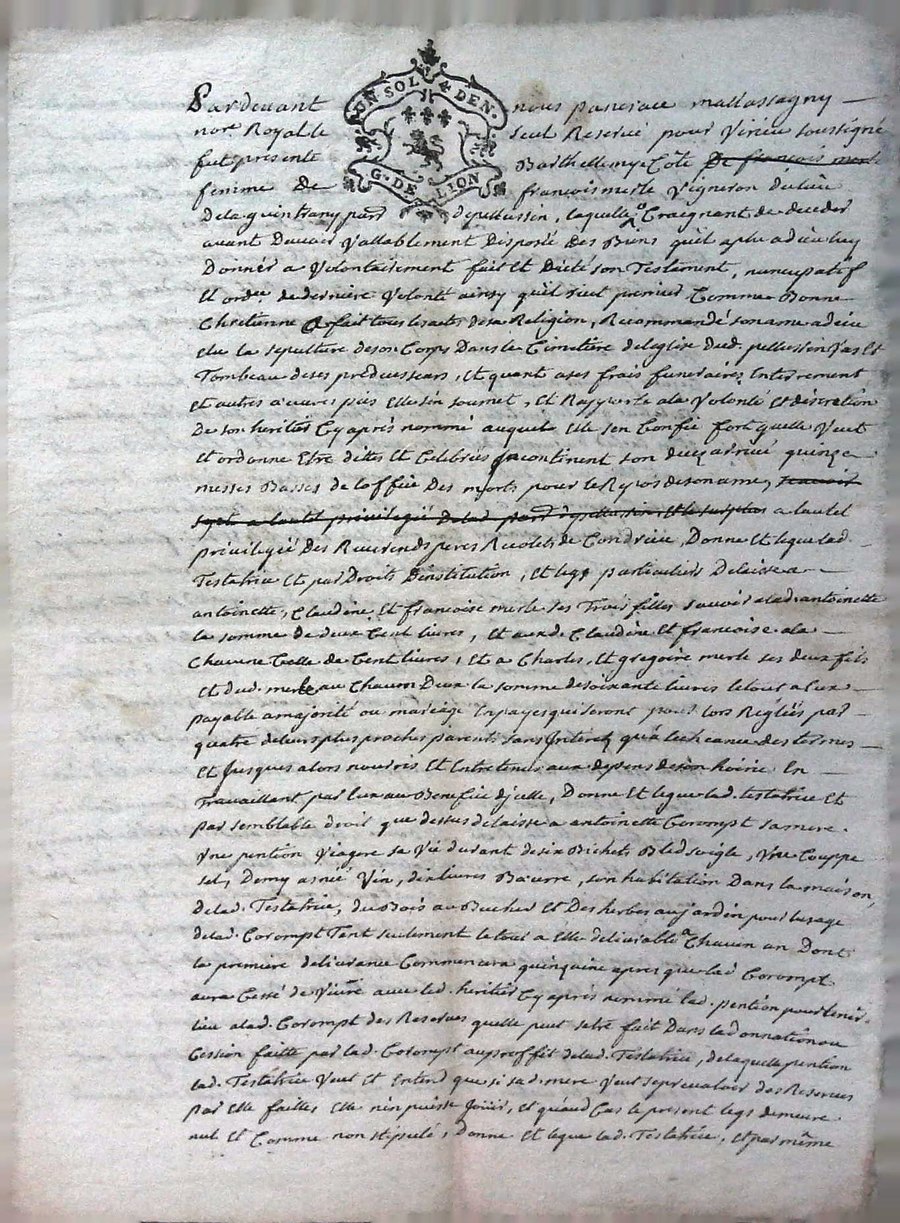 UN SOL 4 DEN.
G. DE LION
Pardevant nous pancrace mallassagny
not.re Royal le seul Reservé pour Virieu soussigné
fut presente Barthellemye Côte De françois merle
femme De françois merle Vigneron du lieu
de la guintrany par.d de pellussin, laquelle Craignant de deceder
avant Davoir Vallablement Disposé Des Biens qu'il a plu a dieu luy
Donner a Volontairement fait et Dicté son Testament, nuncupatif
et ordre de derniere Volonté ainsy qu'il suit premier Comme Bonne
Chretienne a fait tous les actes de sa Religion, Recommandé son ame a dieu
elu la sepulture de son Corps Dans le Cimetière de l'eglise dud. pellussin Vas et
Tombeau de ses predecesseurs, et quant a ses frais funeraires Enterrement
et autres a'uvres pies elle s'en soumet, et Rapporte a la Volonté et discretion
De son heritier Cy après nommé auquel elle s'en Confie fort quelle Veut
et ordonne Etre dittes et Celebrées incontinent son decez arrivé quinze
messes Basses de l'office Des morts pour le Repos de son ame, sçavoir
sept a l'autel privilegié De lad. par.d de pellussin et le surplus a l'autel
privilegié Des Reverends peres Recolets de Condrieu, Donne et legue lad.
Testatrice et par Droits D'institution, et legs particuliers Delaisse a
antoinette, Claudine et francoise merle ses Trois filles sçavoir a lad. antoinette
la somme de deux Cent livres, et aux d. Claudine et francoise a la
Chacune Celle de Cent livres, et a Charles, et gregoire merle ses deux fils
et dud. merle au Chacun Deux la somme de soixante livres le tout a eux
payable a majorité ou mariage En payes qui seront pour lors Reglées par
quatre de leurs plus proches parents sans Interets qu'a l'echeance des termes
et Jusques alors nourris et Entretenus aux depens de son hoirie En
Travaillant par Eux au Benefice d'jcelle, Donne et legue lad. testatrice et
par semblable droit que dessus delaisse a antoinette Corompt sa mere
Vne pention Viagere sa Vie durant de six Bichets Bled seigle, Vne Couppe
sel, Demy asnée Vin, dix livres Beurre, son habitation Dans la maison,
de lad. Testatrice, du Bois au Bucher et Des herbes au jardin pour l'usage
de lad. Corompt Tant seulement le tout a elle delivrable a Chacun an Dont
la premiere delivrance Commencera quinzaine apres que lad Corompt
aura Cessé de Vivre avec led. heritier Cy après nommé lad. pention pour tenir
lieu a lad. Corompt des Reserves quelle peut s'etre fait Dans la donnation ou
Cession faitte par lad. Corompt au proffit de lad. Testatrice, de laquelle pention
lad. Testatrice Veut et Entend que si sad. mere Veut se prevaloir des Reserves
par elle faittes elle n'en puisse Jouir, et qu'aud. Cas le present legs demeure
nul et Comme non stipulé, Donne et legue lad. Testatrice, et par même